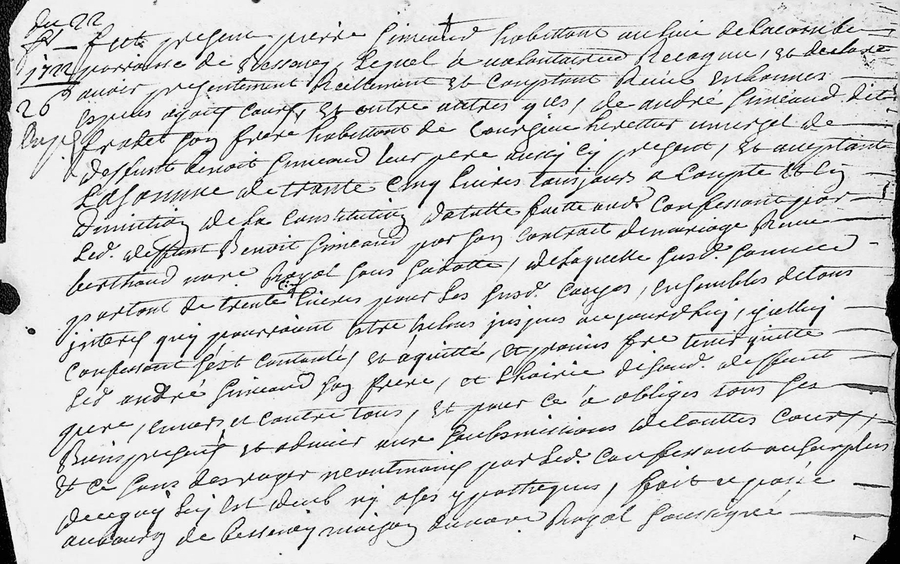 du 22
1722
26
fut present pierre Simeand habittant au lieu de lacombe
parroisse de Bessenay, lequel a volontairement Recogneu, et declaré
avoir presentement Reellement et comptant Receu en bonnes
especes ayant cours et entre autres yces, de andré Simeand dit
fradet son frere habittant de herettier universel de
deffunt benoit Simeand leur pere aussy cy present, et acceptant
La somme de trante cinq livres tousjours a compte et en
diminution de la constitution dotalle faitte aud. confessant par
led. deffunt Benoit Simeand par son contrat de mariage Receu
berthaud nore. Royal sous sa datte, de laquelle susd. somme
partant de trente livres pour les susd. causes, ensembles de tous
interests quy pourroient estre escheus jusques aujourdhuy, yceluy
confessant s'est contanté, et a quitté, et promis fre tenir quitte
led. andré Simeand son frere, et L'hoirie dud. deffunt
pere, envers et contre tous, et pour ce a obligés tous ses
Biens presents et advenir avec soubsmissions de touttes cours,
Et ce sans desroger neantmoins par led. confessant au surplus
de ce quy luy est deub ny a ses ypotheques, fait et passé
au bourg de bessenay maison du nore Royal soussigné